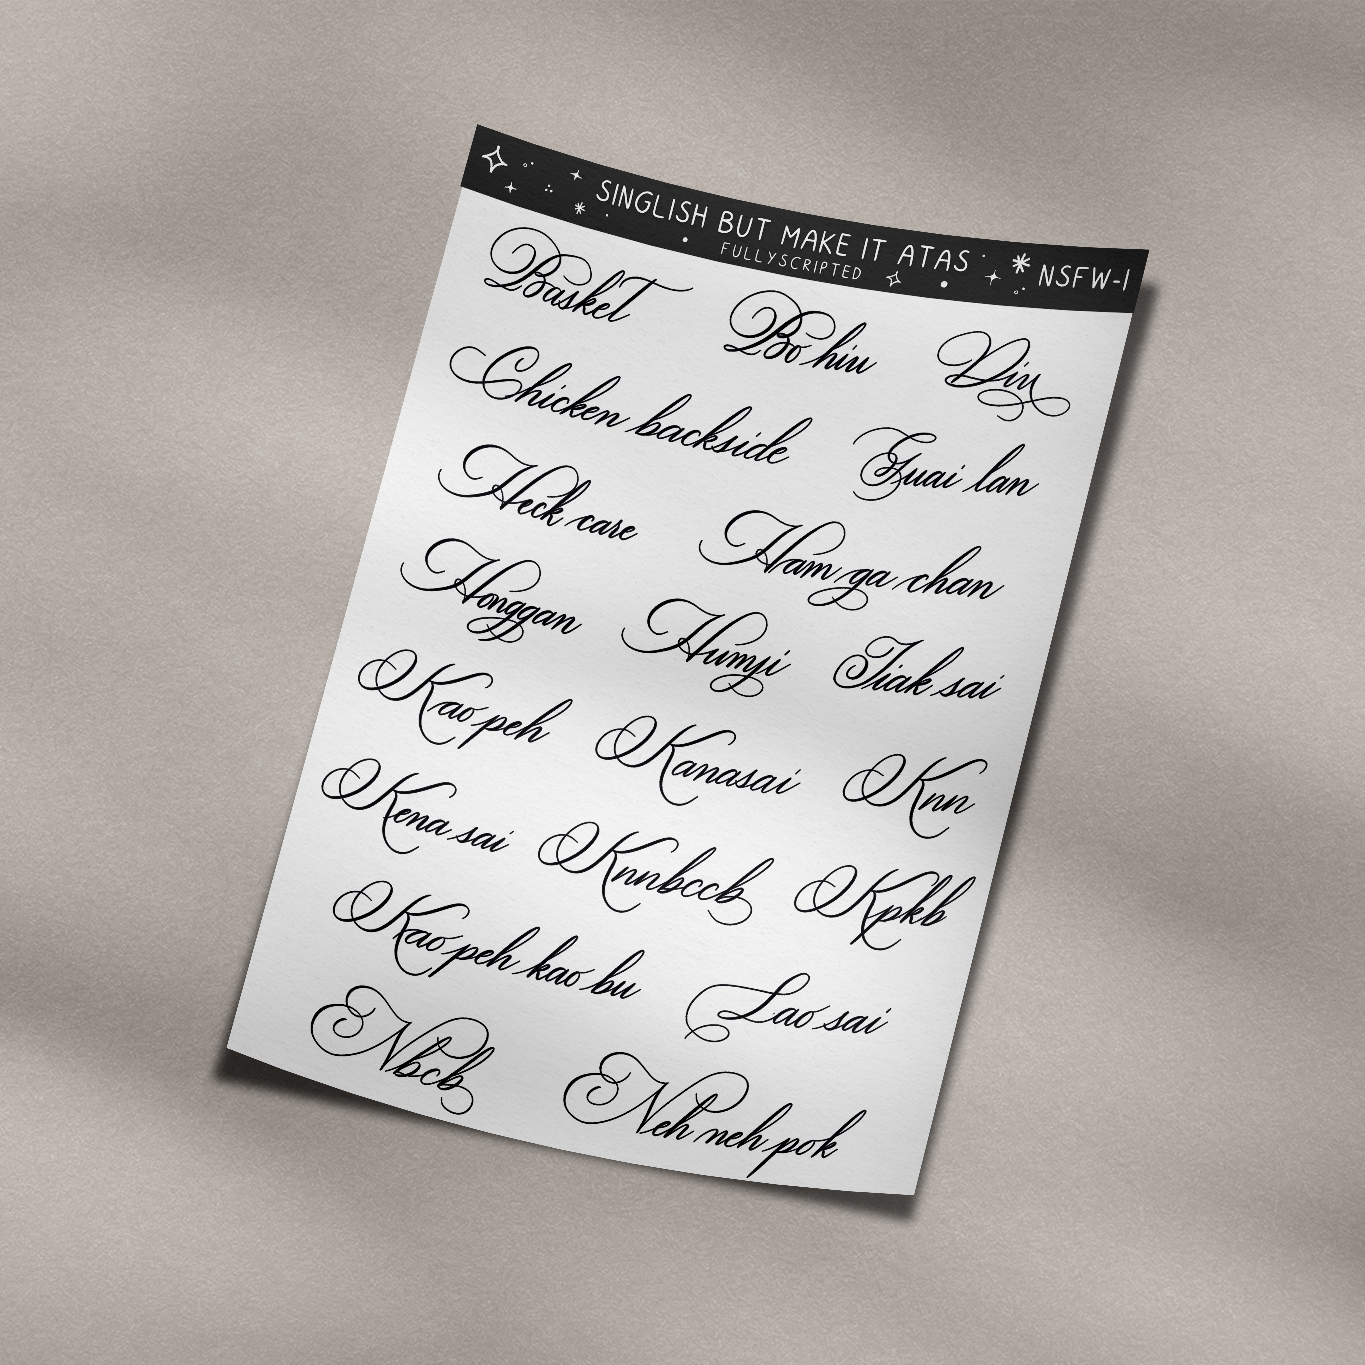 SINGLISH BUT MAKE IT ATAS
FULLYSCRIPTED
NSFW-1
Basket Bo hiu Diu
Chicken backside Guai lan
Heck care Ham ga chan
Honggan Humji Jiak sai
Kao peh Kanasai Knn
Kena sai Knnbccb Kpkb
Kao peh kao bu Lao sai
Nbcb Neh neh pok